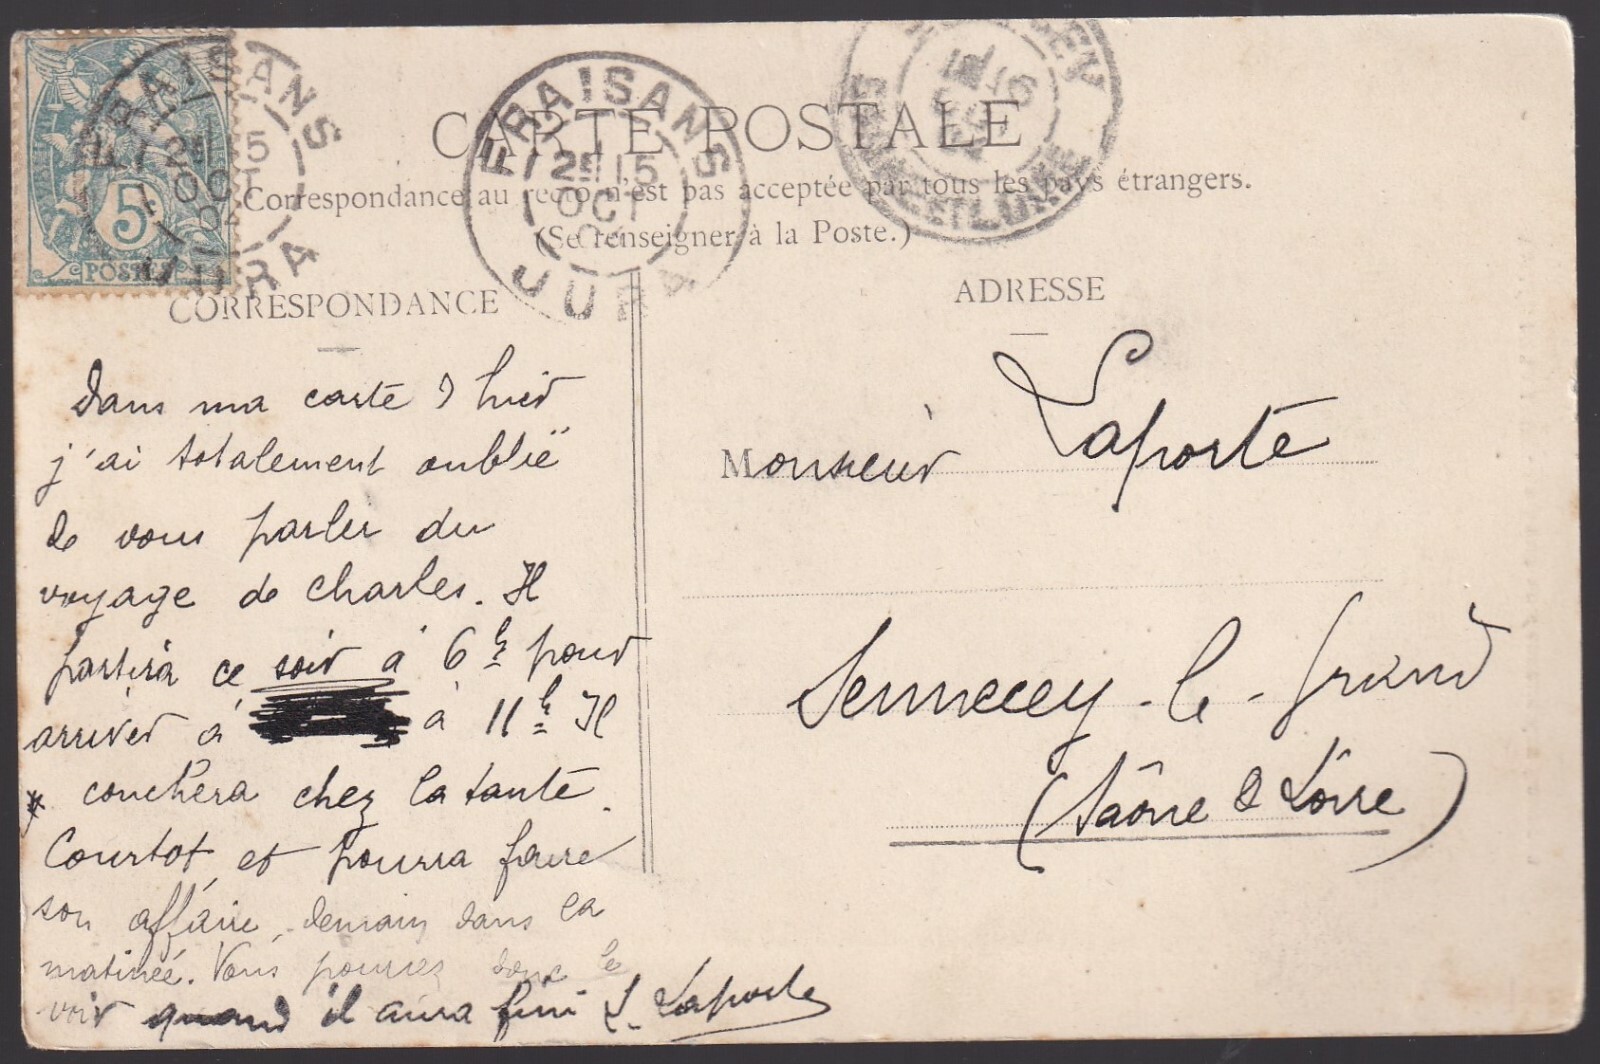 CARTE POSTALE
Correspondance au recto n'est pas acceptée par tous les pays étrangers.
(Se renseigner à la Poste.)
5
POSTES
FRAISANS
2E 15
OCT
JURA
FRAISANS
2E 15
OCT
JURA
16
CORRESPONDANCE
Dans ma carte d'hier
j'ai totalement oublié
de vous parler du
voyage de Charles. Il
partira ce soir à 6h pour
arriver à à 11h Il
couchera chez la tante
Courtot et pourra faire
son affaire, demain dans la
matinée. Vous pourrez donc le
voir quand il aura fini L. Laporte
ADRESSE
Monsieur Laporte
Sennecey-le-Grand
(Saône & Loire)